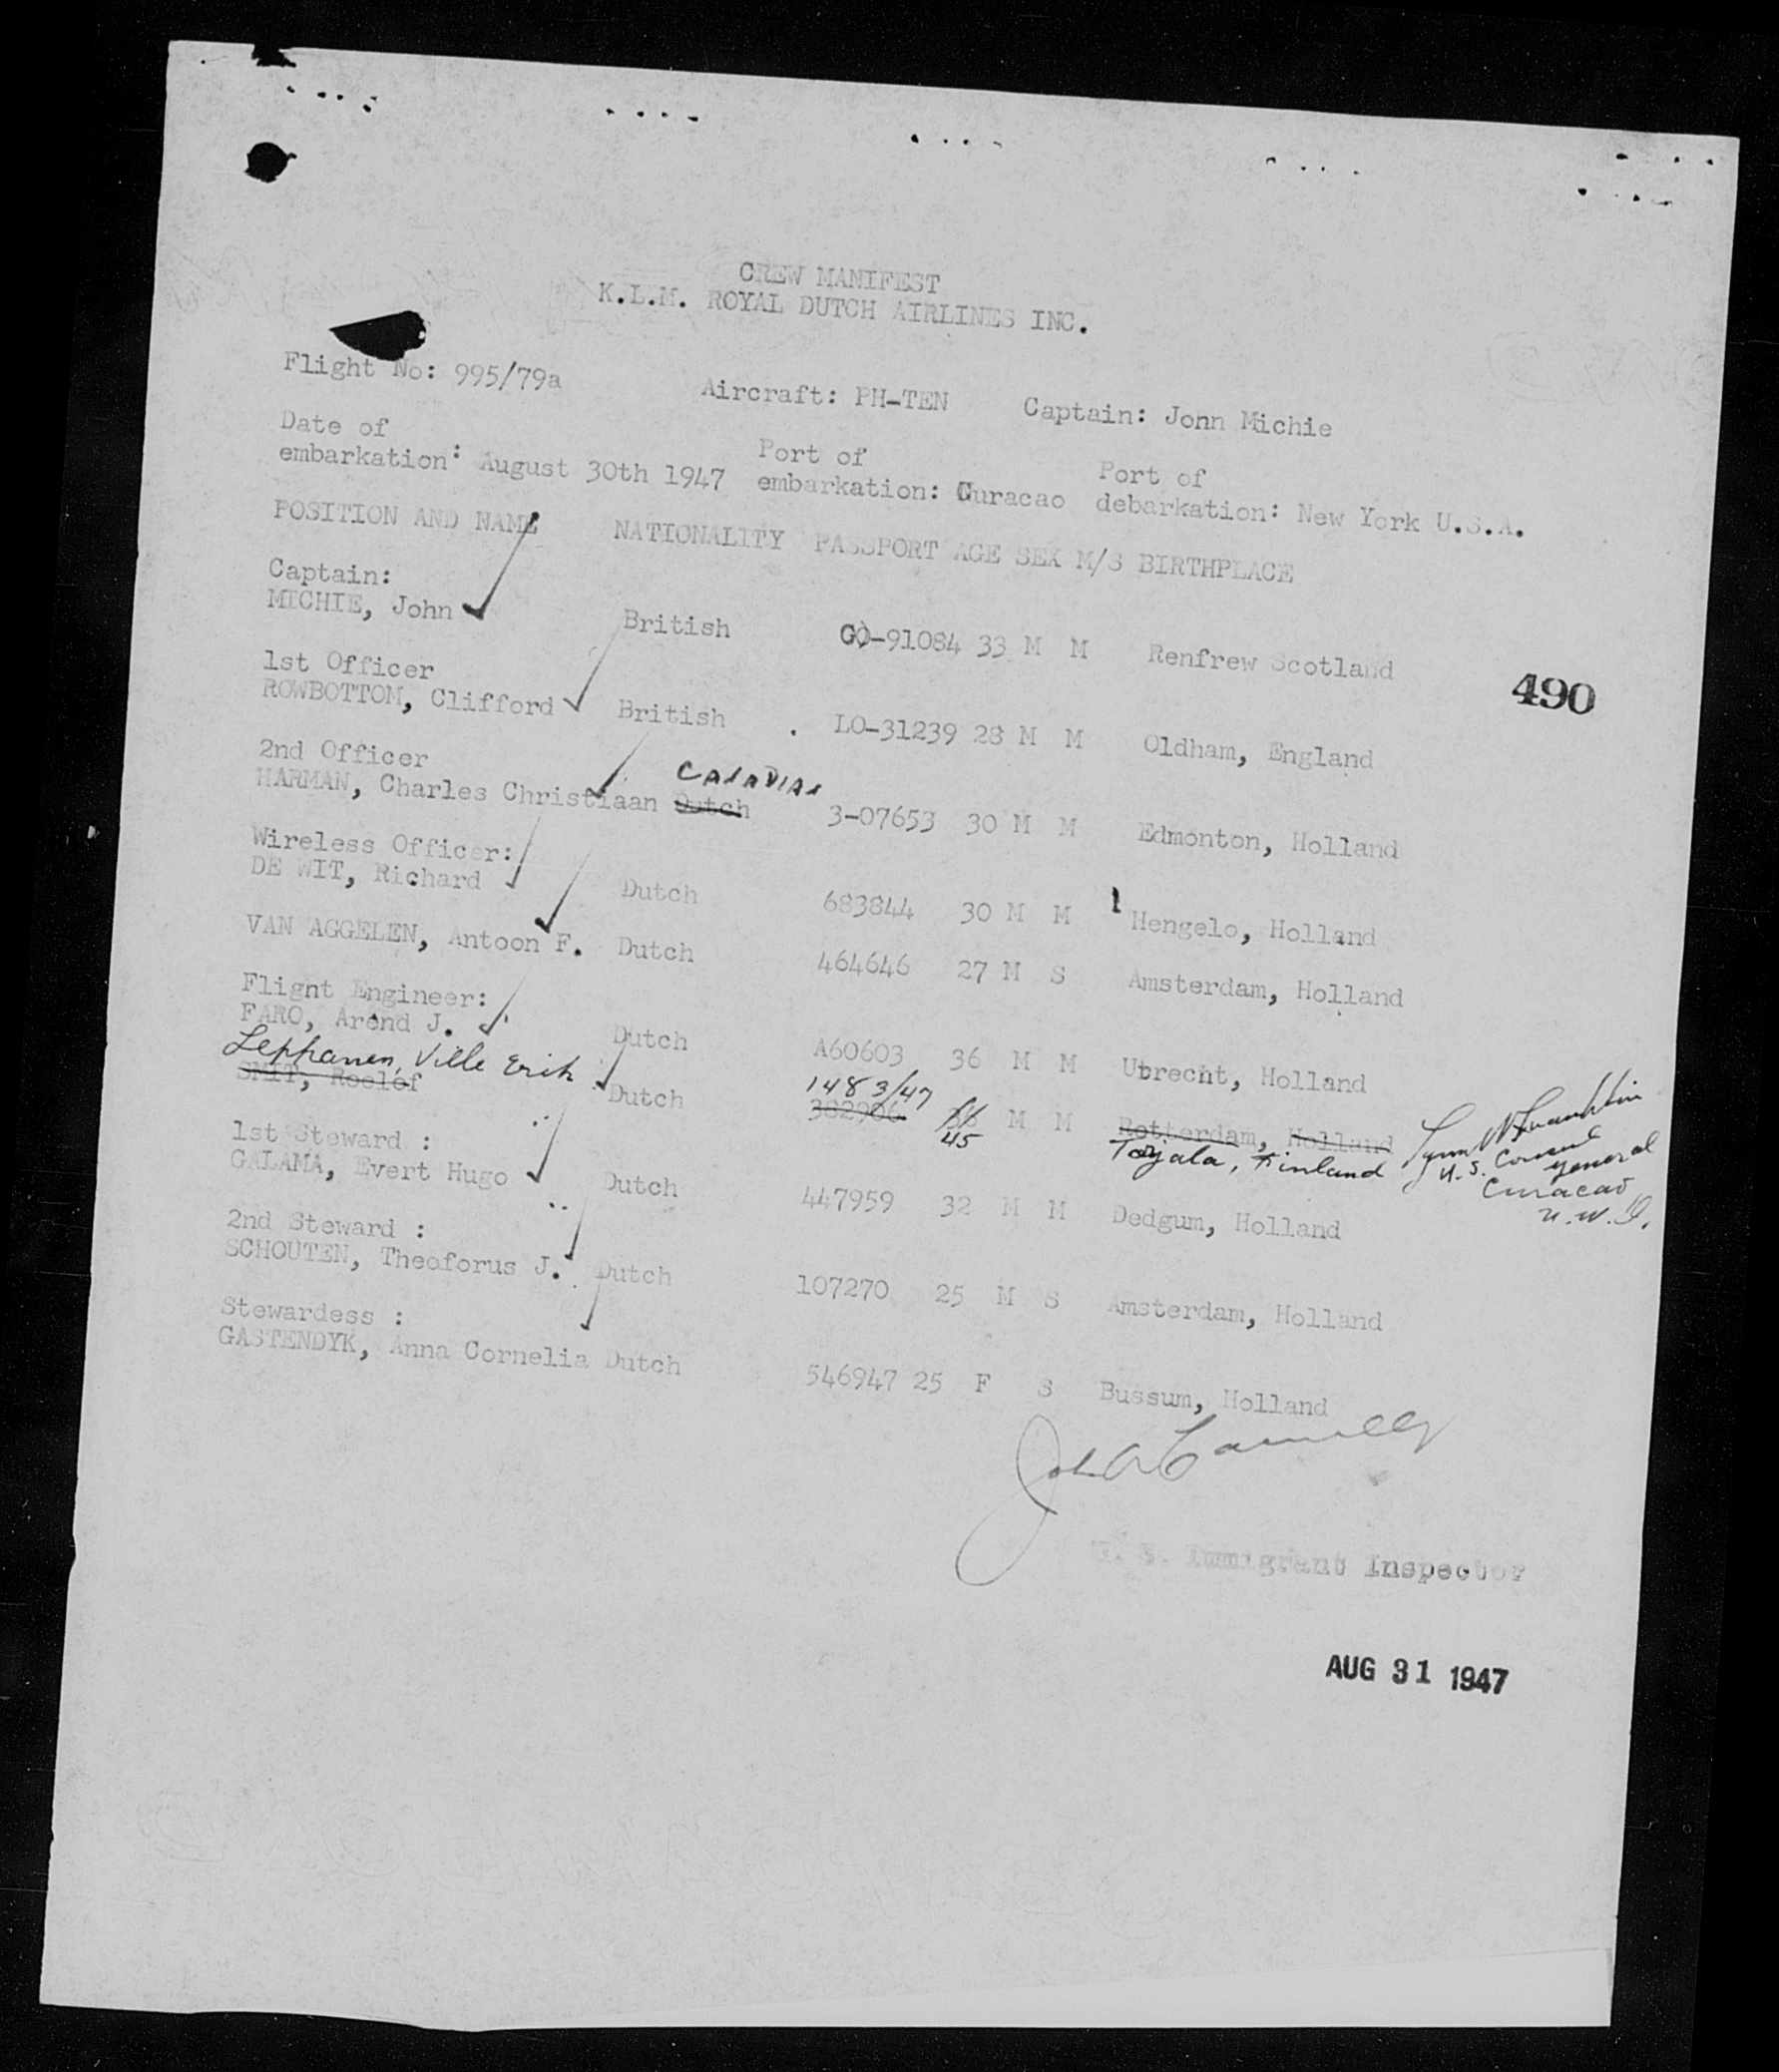 CREW MANIFEST
K.L.M. ROYAL DUTCH AIRLINES INC.
Flight No: 995/79a Aircraft: PH-TEN Captain: John Michie
Date of embarkation: August 30th 1947 Port of embarkation: Curacao Port of debarkation: New York U.S.A.
POSITION AND NAME NATIONALITY PASSPORT AGE SEX M/S BIRTHPLACE
Captain:
MICHIE, John British GO-91084 33 M M Renfrew Scotland
490
1st Officer
ROWBOTTOM, Clifford British LO-31239 28 M M Oldham, England
2nd Officer
CANADIAN
HARMAN, Charles Christiaan Dutch 3-07653 30 M M Edmonton, Holland
Wireless Officer:
DE WIT, Richard Dutch 683844 30 M M Hengelo, Holland
VAN AGGELEN, Antoon F. Dutch 464646 27 M S Amsterdam, Holland
Flight Engineer:
FARO, Arend J. Dutch A60603 36 M M Utrecht, Holland
Leppanen, Ville Erik 1483/47
SMIT, Roelof Dutch 382906 M M Rotterdam, Holland
45 Toijala, Finland
U.S. Consul
General
Curacao
N.W.I.
1st Steward :
GALAMA, Evert Hugo Dutch 447959 32 M M Dedgum, Holland
2nd Steward :
SCHOUTEN, Theoforus J. Dutch 107270 25 M S Amsterdam, Holland
Stewardess :
GASTENDYK, Anna Cornelia Dutch 546947 25 F S Bussum, Holland
U. S. Immigrant Inspector
AUG 31 1947